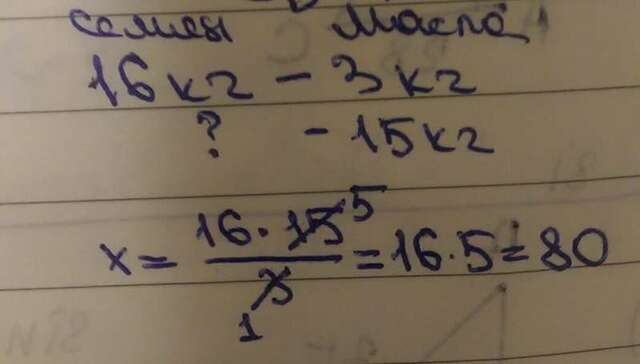 семены масла
16 кг - 3 кг
? - 15 кг
x = 16 · 15 5 / 3 1 = 16 · 5 = 80